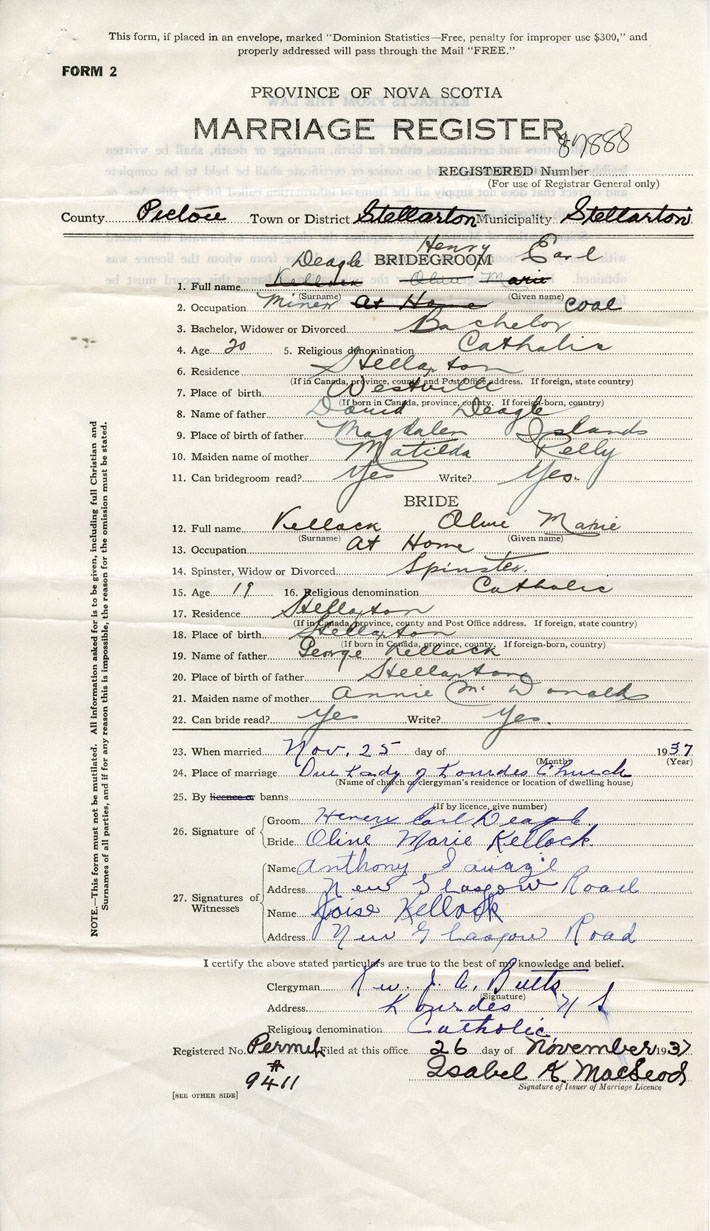 This form, if placed in an envelope, marked "Dominion Statistics—Free, penalty for improper use $300," and
properly addressed will pass through the Mail "FREE."
FORM 2
PROVINCE OF NOVA SCOTIA
MARRIAGE REGISTER
87888
REGISTERED Number
(For use of Registrar General only)
County Pictou Town or District Stellarton Municipality Stellarton
BRIDEGROOM
Deagle Henry Earl
1. Full name Kellock Oline Marie
(Surname) (Given name)
2. Occupation Miner At Home coal
3. Bachelor, Widower or Divorced Bachelor
4. Age 20 5. Religious denomination Catholic
6. Residence Stellarton
(If in Canada, province, county and Post Office address. If foreign, state country)
7. Place of birth Westville
(If born in Canada, province, county. If foreign-born, country)
8. Name of father David Deagle
9. Place of birth of father Magdalen Islands
10. Maiden name of mother Matilda Kelly
11. Can bridegroom read? Yes Write? Yes.
BRIDE
12. Full name Kellock Oline Marie
(Surname) (Given name)
13. Occupation At Home
14. Spinster, Widow or Divorced Spinster.
15. Age 19 16. Religious denomination Catholic
17. Residence Stellarton
(If in Canada, province, county and Post Office address. If foreign, state country)
18. Place of birth Stellarton
(If born in Canada, province, county. If foreign-born, country)
19. Name of father George Kellock
20. Place of birth of father Stellarton
21. Maiden name of mother Annie McDonald
22. Can bride read? Yes Write? Yes.
23. When married Nov. 25 day of 1937
(Month) (Year)
24. Place of marriage Our Lady of Lourdes Church
(Name of church or clergyman's residence or location of dwelling house)
25. By licence or banns
(If by licence, give number)
26. Signature of Groom Henery Earl Deagle
Bride Oline Marie Kellock
27. Signatures of Witnesses
Name Anthony
Address New Glasgow Road
Name Loise Kellock
Address New Glasgow Road
I certify the above stated particulars are true to the best of my knowledge and belief.
Clergyman Rev. J. A. Butts
(Signature)
Address Lourdes N S
Religious denomination Catholic
Registered No. Permit Filed at this office 26 day of November 1937
# 9411
Isabel K. MacLeod
Signature of Issuer of Marriage Licence
[SEE OTHER SIDE]
NOTE.—This form must not be mutilated. All information asked for is to be given, including full Christian and
Surnames of all parties, and if for any reason this is impossible, the reason for the omission must be stated.